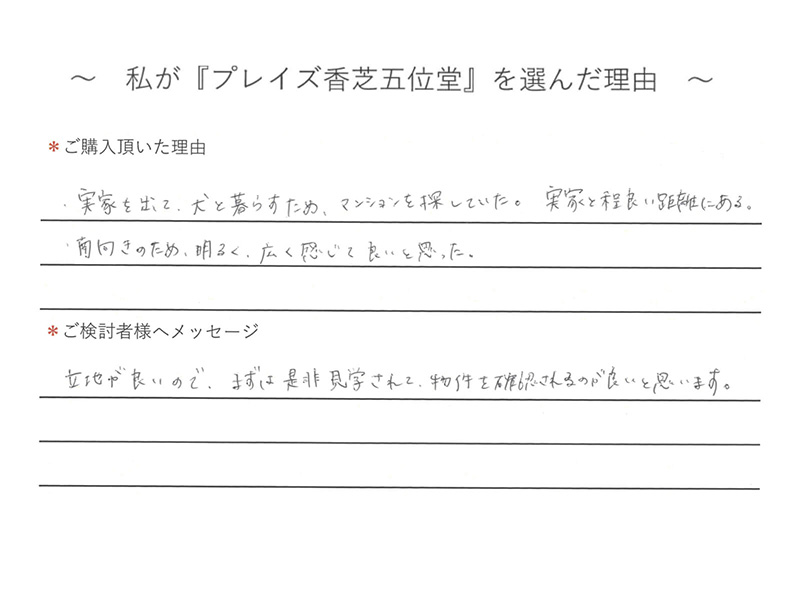 〜 私が『プレイズ香芝五位堂』を選んだ理由 〜
*ご購入頂いた理由
・実家を出て、犬と暮らすため、マンションを探していた。 実家と程良い距離にある。
・南向きのため、明るく、広く感じて良いと思った。
*ご検討者様へメッセージ
立地が良いので、まずは是非見学されて、物件を確認されるのが良いと思います。